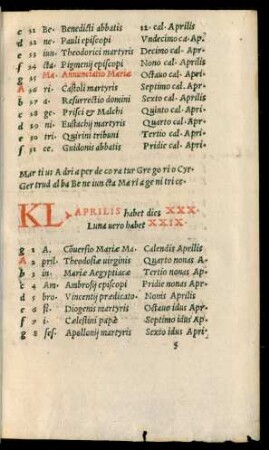 c 21 Be- Benedicti abbatis 12. cal. Aprilis
d 22 ne- Pauli episcopi Vndecimo ca. Ap.
e 23 iun- Theodorici martyris Decimo cal. Apr.
f 24 cta- Pigmenij episcopi Nono cal. Aprilis
g 25 Ma- Annunciatio Mariæ Octauo cal. Aprí-
A 26 ri- Castoli martyris Septimo cal. Apr-
b 27 a- Resurrectio domini Sexto cal. Aprilis
c 28 ge- Prisci & Malchi Quinto cal. Apri-
d 29 ni- Eustachij martyris Quarto cal. Apr-
e 30 tri- Quirini tribuni Tertio cal. Apri-
f 31 ce. Guidonis abbatis Pridie cal. Apri-
Mar ti us A dri a per de co ra tur Gre go ri o Cyr-
Ger trud al ba Be ne iun cta Ma ri a ge ni tri ce.
KL APRILIS habet dies XXX.
Luna uero habet XXIX.
g 1 A. Cõuersio Mariæ Ma. Calendis Aprilis
A 2 pril. Theodosiæ uirginis Quarto nonas A-
b 3 in. Mariæ Aegyptiacæ Tertio nonas Ap-
c 4 Am- Ambrosij episcopi Pridie nonas Apr-
d 5 bro- Vincentij prædicato. Nonis Aprilis
e 6 si- Diogenis martyris Octauo idus Apr-
f 7 i. Cælestini papæ Septimo idus Ap-
g 8 fes- Apollonij martyris Sexto idus Apri-